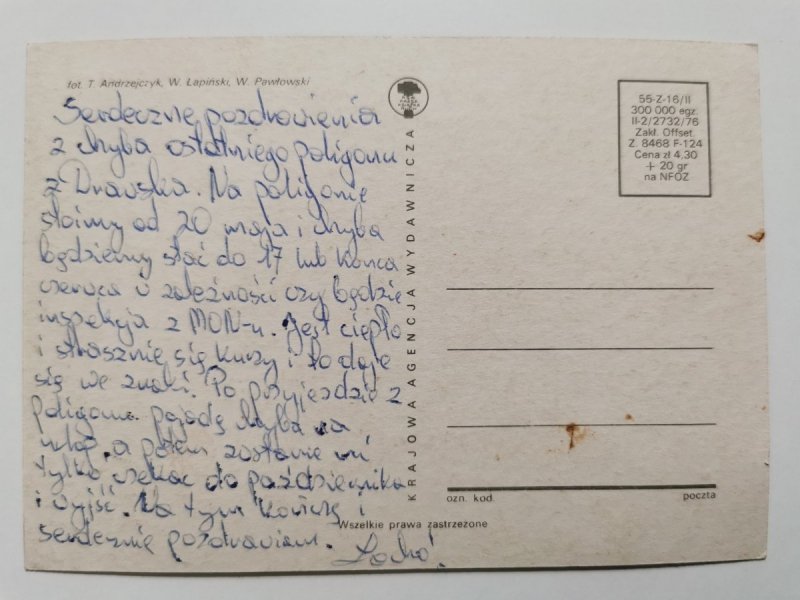 fot. T. Andrzejczyk, W. Łapiński, W. Pawłowski
Serdeczne pozdrowienia
z chyba ostatniego poligonu
z Drawska. Na poligonie
stoimy od 20 maja i chyba
będziemy stać do 17 lub końca
czerwca w zależności czy będzie
inspekcja z MON-u. Jest ciepło
i strasznie się kurzy i to daje
się we znaki. Po przyjeździe z
poligonu pojadę chyba na
urlop a potem zostanie mi
tylko czekać do października
i wyjść. Na tym kończę i
serdecznie pozdrawiam.
KRAJOWA AGENCJA WYDAWNICZA
55-Z-16/II
300 000 egz.
II-2/2732/76
Zakł. Offset.
Z. 8468 F-124
Cena zł 4,30
+ 20 gr
na NFOZ
ozn. kod
poczta
Wszelkie prawa zastrzeżone